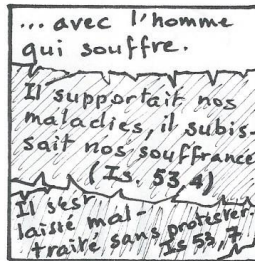 ... avec l'homme
qui souffre.
Il supportait nos
maladies, il subis-
sait nos souffrance
(Is. 53,4)
Il s'est
laissé mal-
traité sans protester.
Is 53,7